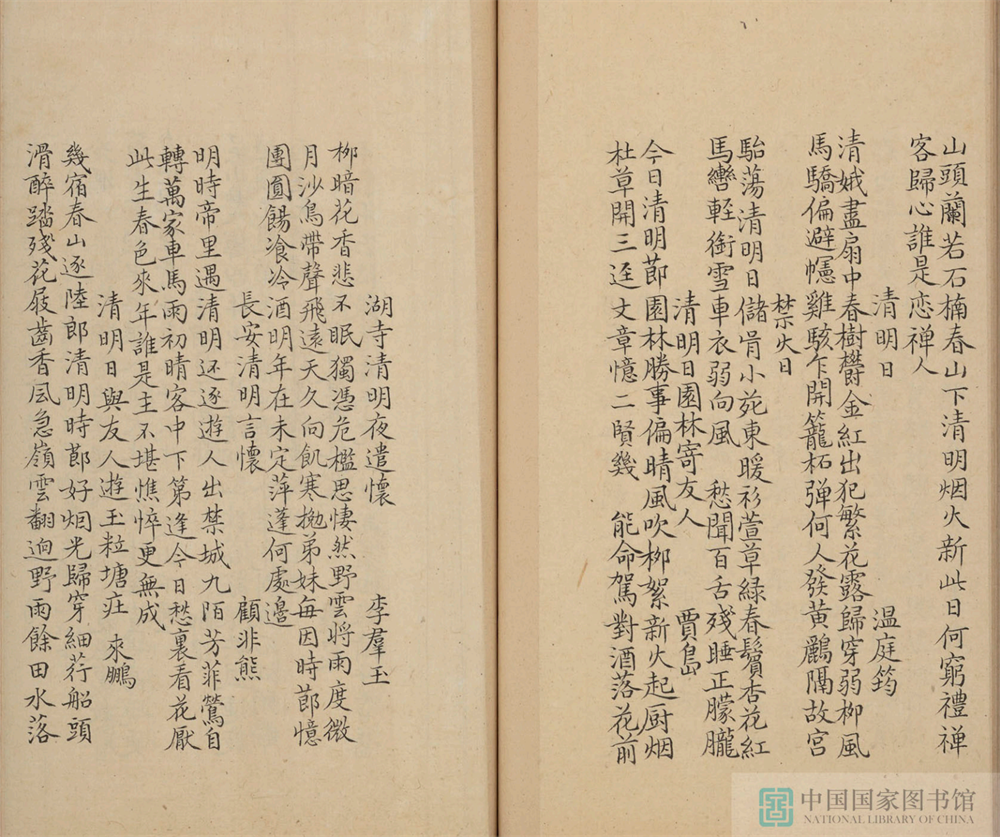 山頭蘭若石楠春山下清明烟火新此日何窮禮禅
客歸心誰是恋禅人
清明日 温庭筠
清娥盡扇中春樹欝金紅出犯繁花露歸穿弱柳風
馬驕偏避幰雞駭乍開籠柘弹何人發黄鸝隔故宮
禁火日
駘蕩清明日儲胥小苑東暖衫萱草緑春鬢杏花紅
馬轡軽銜雪車衣弱向風愁聞百舌殘睡正朦朧
清明日園林寄友人 賈島
今日清明節園林勝事偏晴風吹柳絮新火起厨烟
杜草開三逕文章憶二賢幾 能命駕對酒落花前
湖寺清明夜遣懷 李羣玉
柳暗花香悲不眠獨憑危檻思悽然野雲将雨度微
月沙鳥帶聲飛遠天久向飢寒抛弟妹每因時節憶
團圓餳飡冷酒明年在未定萍蓬何處邊
長安清明言懷 顧非熊
明時帝里遇清明还逐遊人出禁城九陌芳菲鶯自
轉萬家車馬雨初晴客中下第逢今日愁裏看花厭
此生春色來年誰是主不堪憔悴更無成
清明日與友人遊玉粒塘庄 來鵬
幾宿春山逐陸郎清明時節好烟光歸穿細荇船頭
滑醉踏殘花屐齒香風急嶺雲翻迥野雨餘田水落
中国国家图书馆
NATIONAL LIBRARY OF CHINA